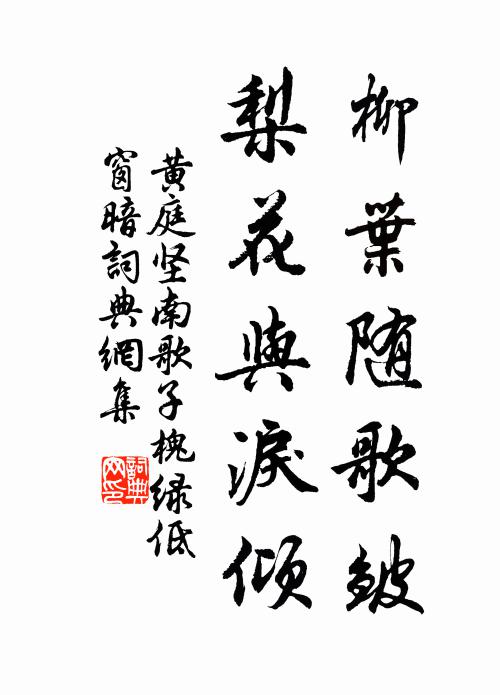 柳葉随歌皺
梨花與淚傾
黄庭坚南歌子槐绿低
窗暗詞典網集
詞典网印